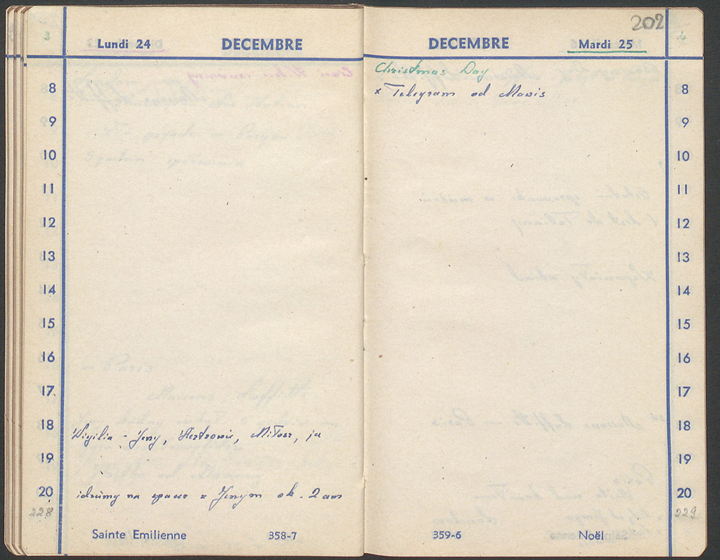 Lundi 24
DECEMBRE
8
9
10
11
12
13
14
15
16
17
18
Wigilia - Jerzy, Hertzowie, Miłosz, ja
19
idziemy na spacer z Jerzym ok. 2 am
20
228
Sainte Emilienne
358-7
202
DECEMBRE
Mardi 25
Christmas Day
8
x Telegram od Mowis
9
10
11
12
13
14
15
16
17
18
19
20
229
359-6
Noël